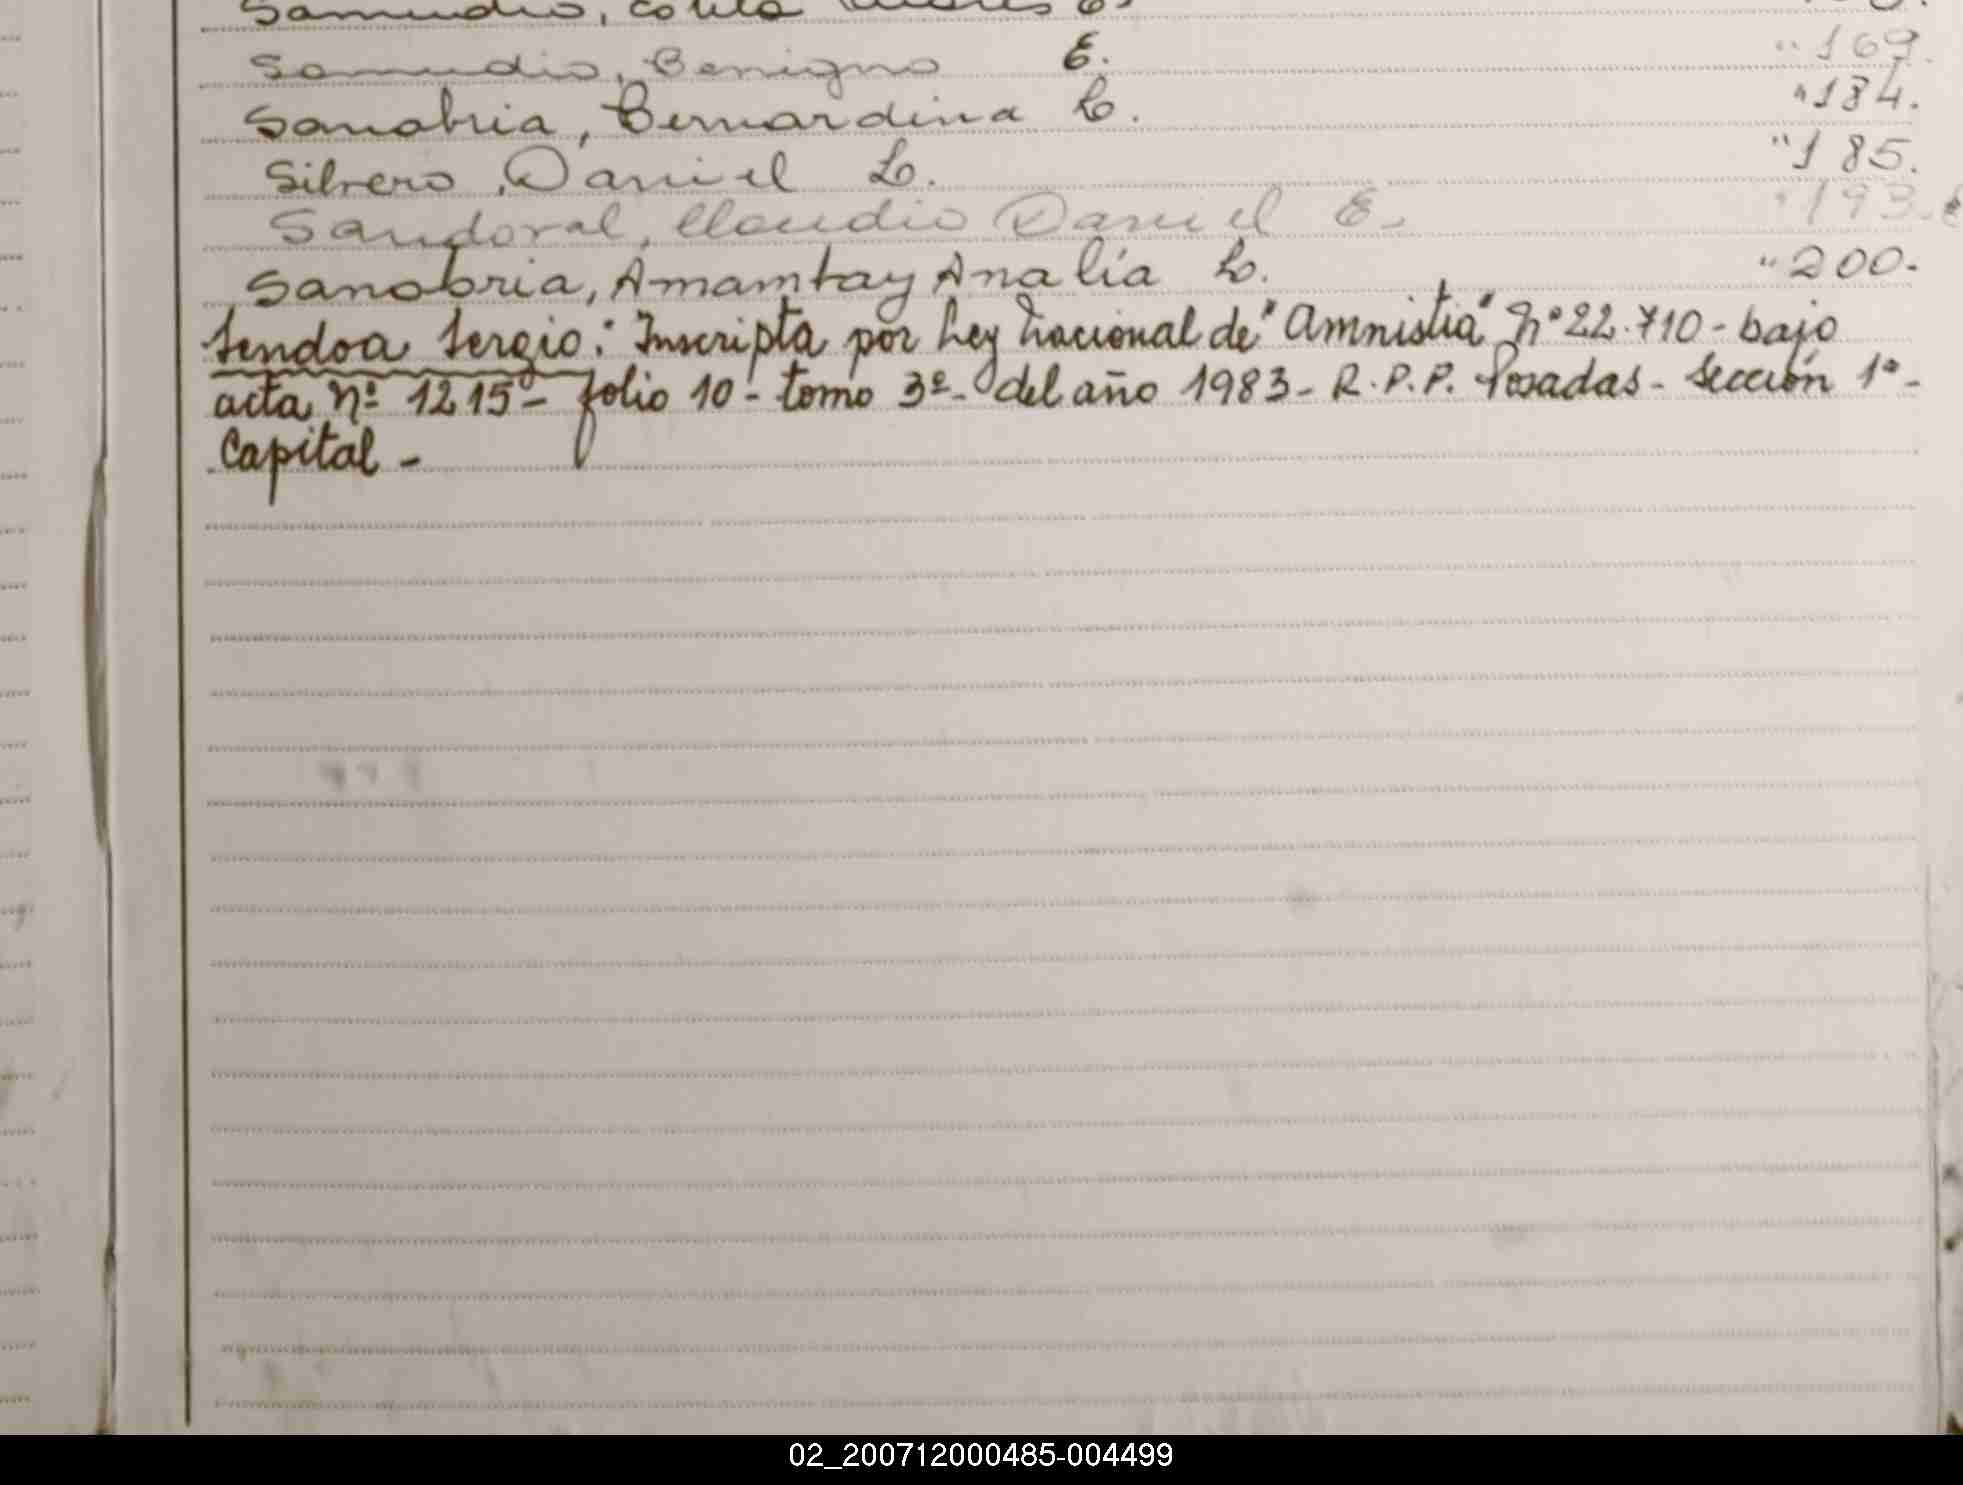 Samudio,
Samudio, Benigno E. " 169.
Sanabria, Bernardina L. " 184.
Silvero, Daniel L. " 185.
Sandoval, Claudio Daniel E. " 193.
Sanabria, Amambay Analía L. " 200.
Sendoa Sergio: Inscripta por ley nacional de "Amnistia" Nº 22.710 - bajo
acta Nº 1215 - folio 10 - tomo 3º - del año 1983 - R.P.P. Posadas - Sección 1ª -
Capital -
02_200712000485-004499